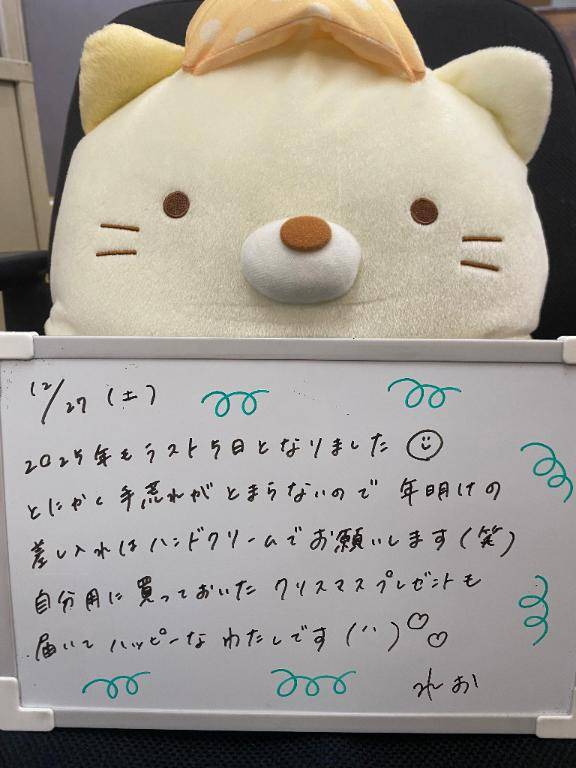 12/27 (土)
2025年もラスト5日となりました
とにかく手荒れがとまらないので 年明けの
差し入れはハンドクリームでお願いします(笑)
自分用に買っておいた クリスマスプレゼントも
届いて ハッピーな わたしです (¨)♡♡
れお